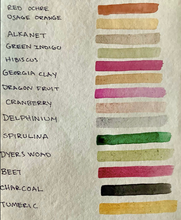 RED OCHRE
OSAGE ORANGE
ALKANET
GREEN INDIGO
HIBISCUS
GEORGIA CLAY
DRAGON FRUIT
CRANBERRY
DELPHINIUM
SPIRULINA
DYERS WOAD
BEET
CHARCOAL
TUMERIC